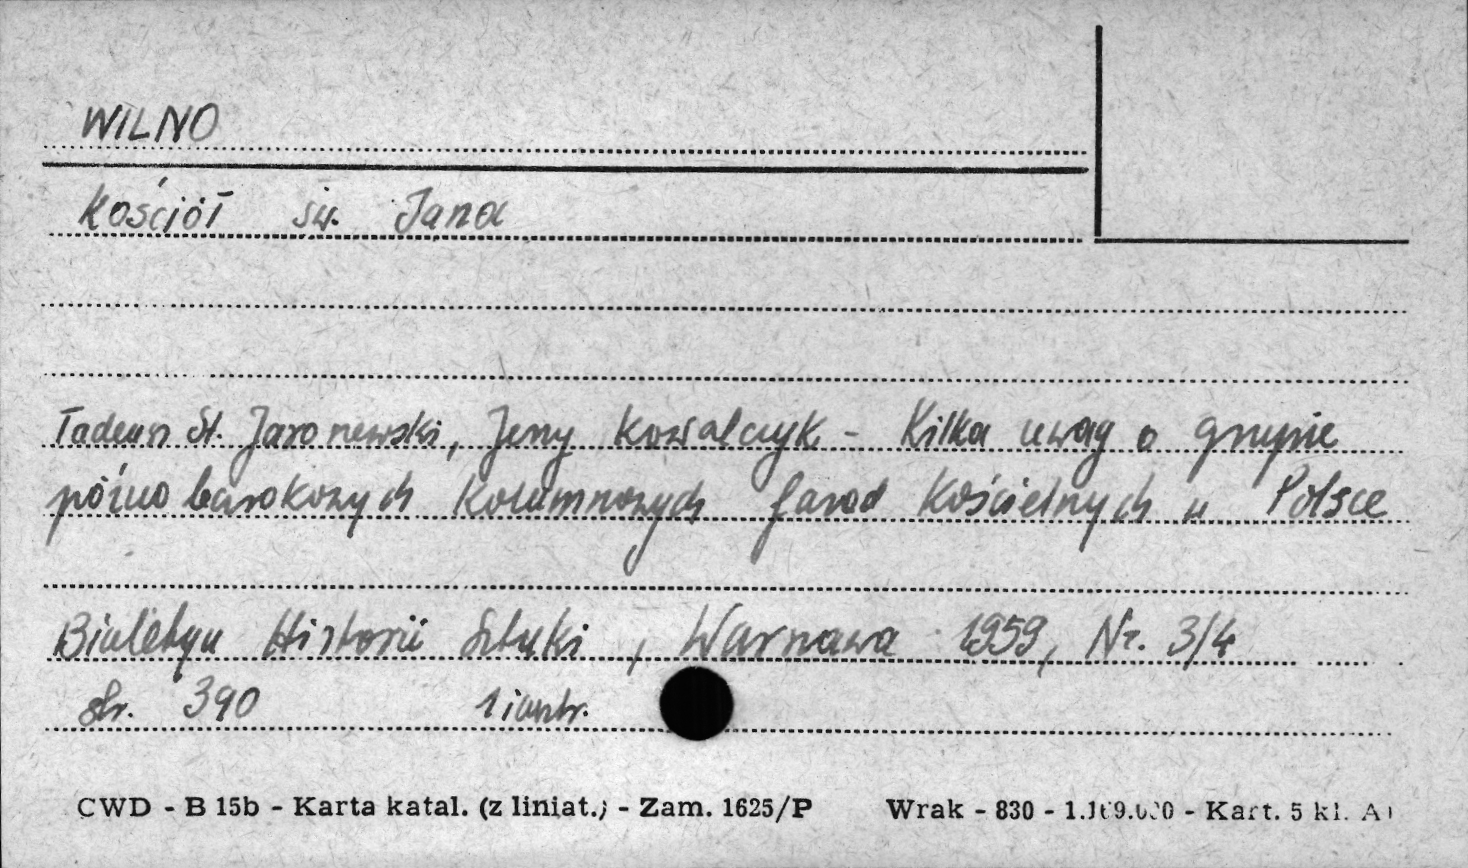 WILNO
Kościół św. Jana
Tadeusz St. Jaroszewski, Jerzy Kowalczyk - Kilka uwag o grupie
późno barokowych kolumnowych fasad kościelnych w Polsce
Biuletyn Historii Sztuki, Warszawa 1959, Nr. 3/4
str. 390 1 ilustr.
CWD - B 15b - Karta katal. (z liniat.) - Zam. 1625/P Wrak - 830 - Kart. 5 kl.